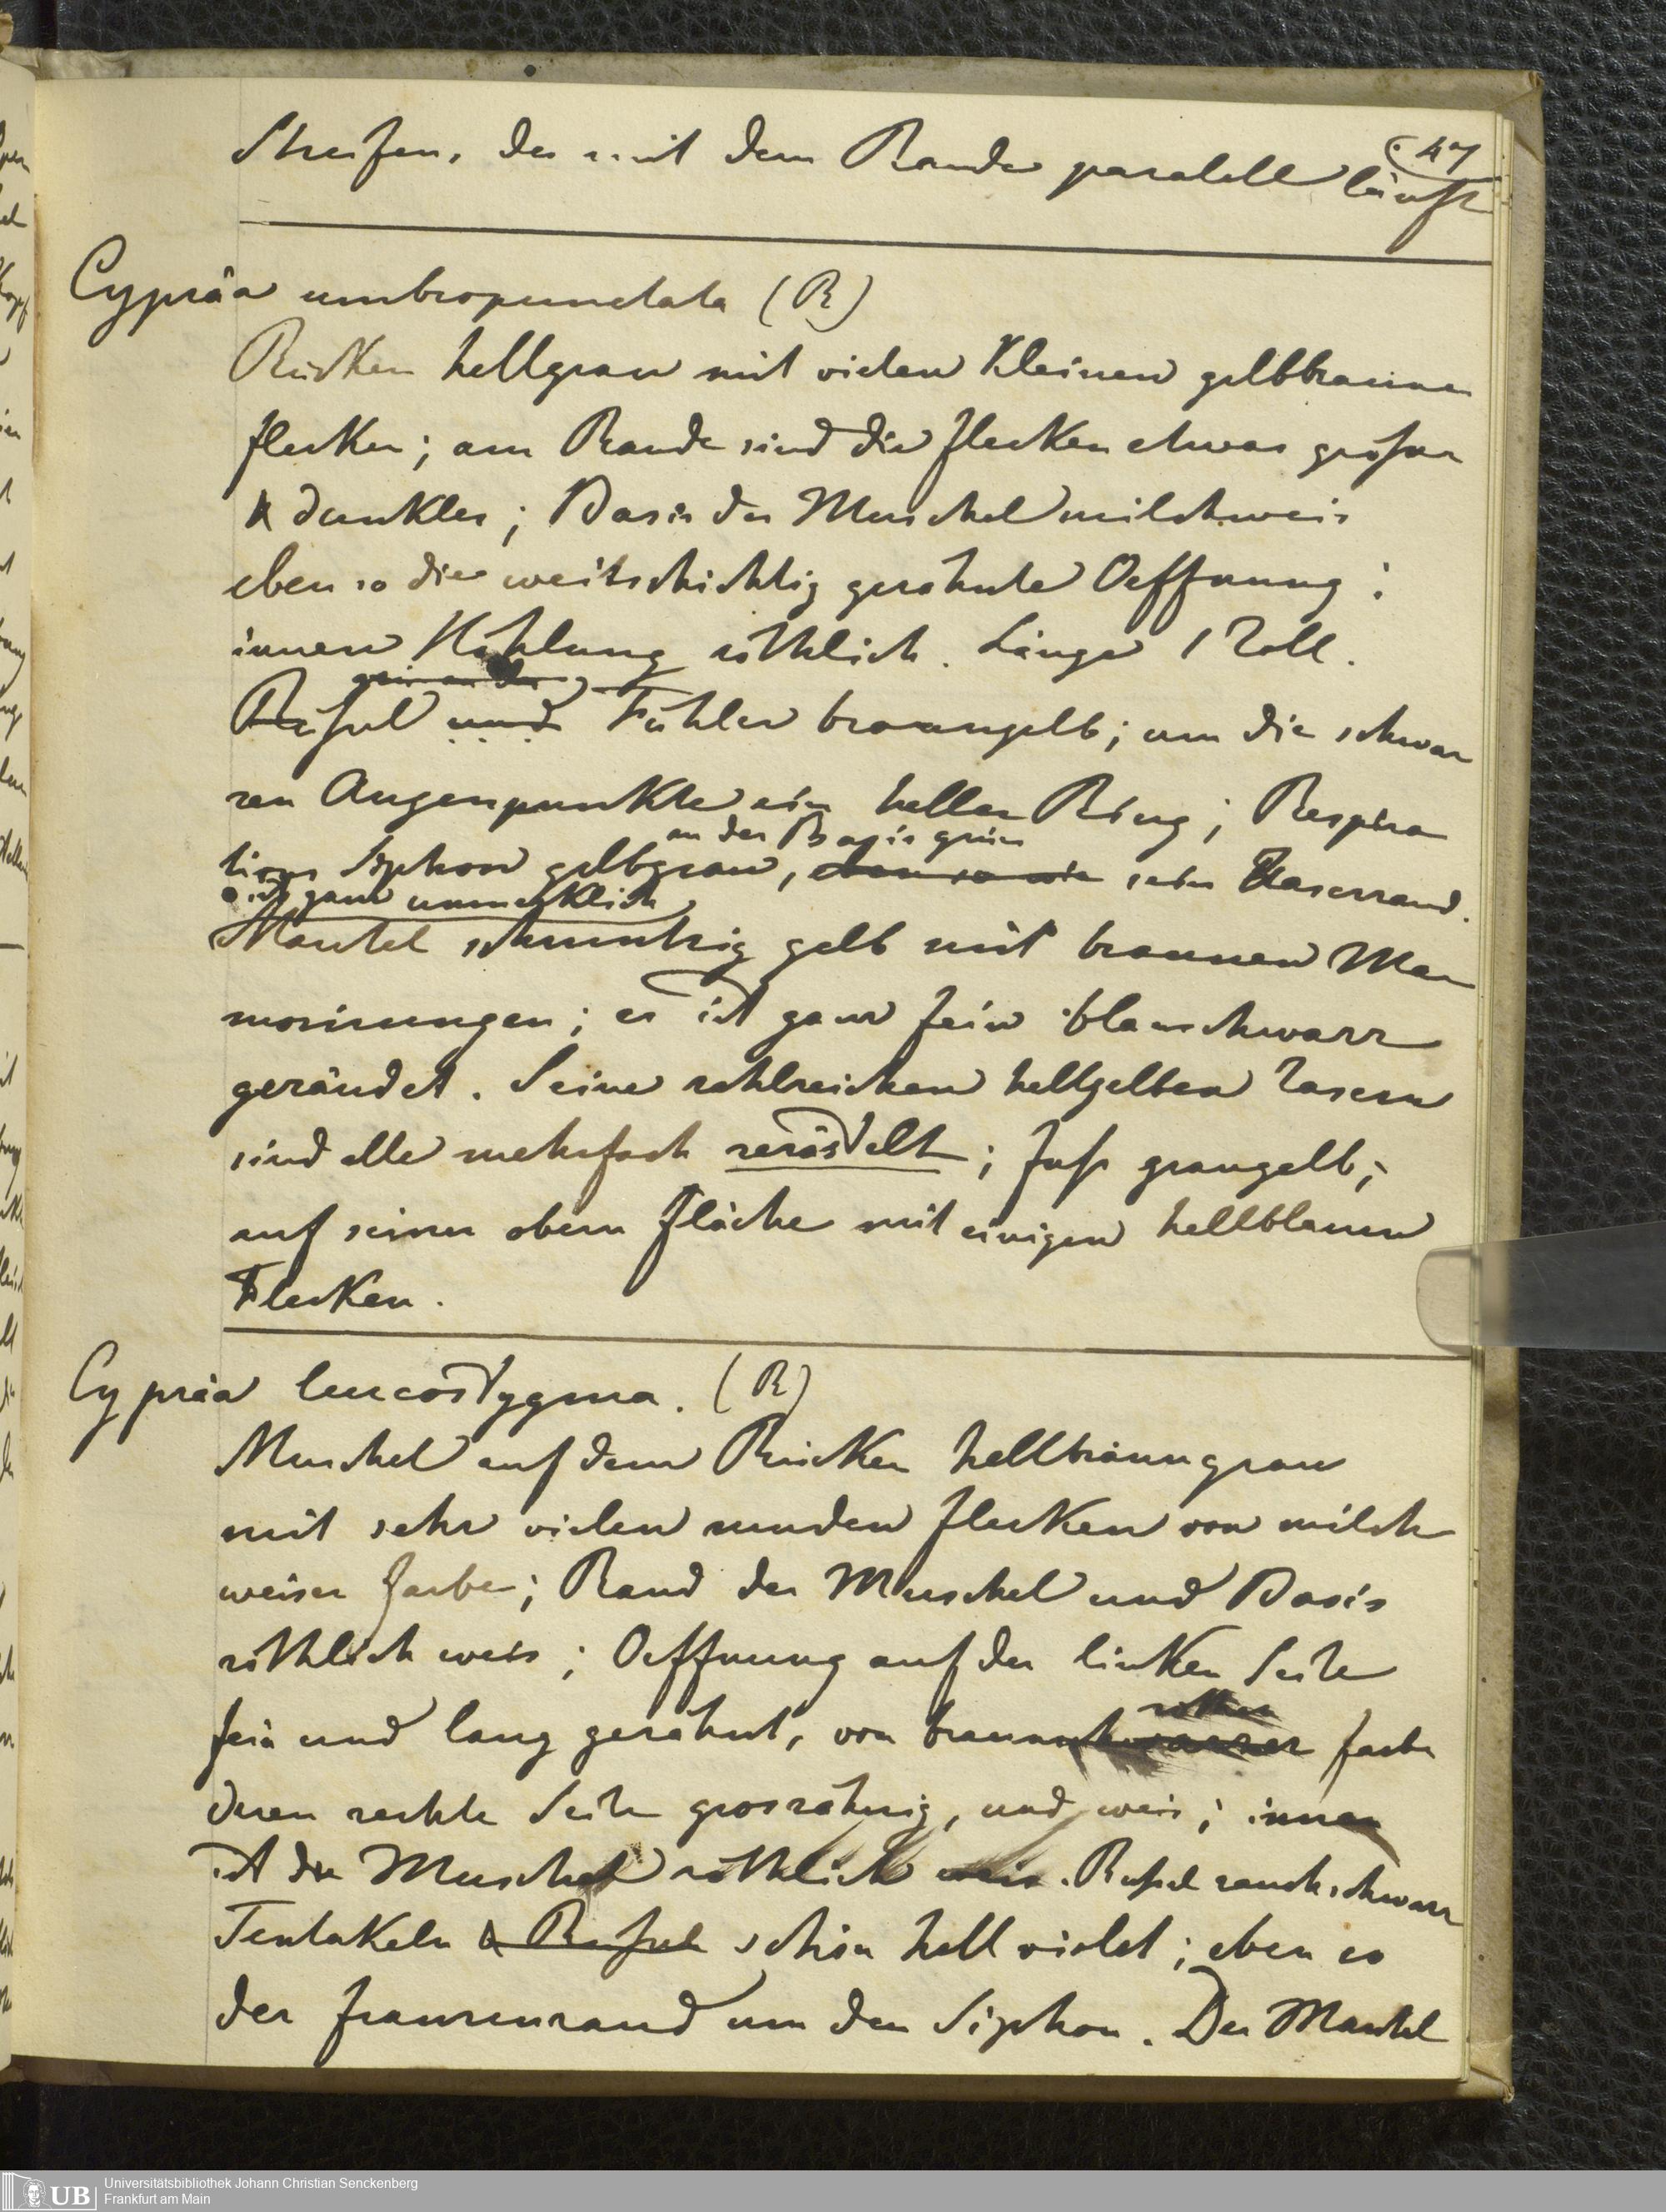 47
Streifen, der mit dem Rande paralell läuft
Cypräa umbropunctata (R)
Rücken hellgrau mit vielen Kleinen gelbbraunen
flecken; am Rande sind die flecken etwas größer
& dunkler; Basis der Muschel milchweis
eben so die weitschichtig gezahnte Oeffnung;
innere Höhlung röthlich. Länge 1 Zoll.
Rüssel und Fühler braungelb; um die schwar
zen Augenpunkte ein heller Ring; Respira
an der Basis grün
tions Siphon gelbgrau, eben so wie sein Zaserrand.
ist ganz unmerklich
Mantel schmutzig gelb mit braunen Mar
morirungen; er ist ganz fein blauschwarz
gerändet. Seine zahlreichen hellgelben Zasern
sind alle mehrfach zerästelt; fuß graugelb;
auf seiner obern fläche mit einigen hellblauen
Flecken.
Cypräa leucostygma. (R)
Muschel auf dem Rücken hellbräungrau
mit sehr vielen runden flecken von milch
weiser farbe; Rand der Muschel und Basis
röthlich weis; Oeffnung auf der linken Seite
rother
fein und lang gezahnt, von braunschwarzer farbe
deren rechte Seite groszähnig, und weis; innen
ist die Muschel röthlich weis. Rüssel rauchschwarz
Tentakeln & Rüssel schön hell violet; eben so
der franzenrand um den Siphon. Der Mantel
Universitätsbibliothek Johann Christian Senckenberg
UB Frankfurt am Main